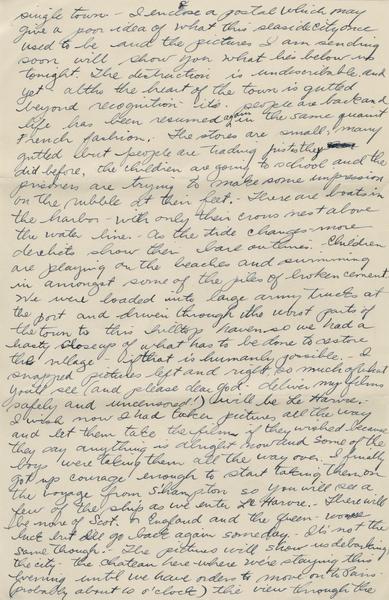 8
single town - I enclose a postal which may
give a poor idea of what this seaside city once
used to be and the pictures I am sending
soon will show you what lies below us
tonight. The distruction is undescribable, and
yet altho the heart of the town is gutted
beyond recognition its people are back and
life has been resumed again in the same quaint
French fashion. The stores are small, many
gutted but people are trading just as they
did before, the children are going to school and the
prisoners are trying to make some impression
on the rubble at their feet. - There are boats in
the harbor - with only their crows nest above
the water line - as the tide changes more
derelicts show their bare outlines. Children
are playing on the beaches and swimming
in amongst some of the piles of broken cement.
We were loaded into large army trucks at
the port and driven through the worst parts of
the town to this hilltop haven so we had a
hasty closeup of what has to be done to restore
this village - if that is humanly possible. - I
snapped pictures left and right so much of what
you'll see (and please dear god - deliver my films
safely and uncensored!) will be Le Havre. -
I wish now I had taken pictures all the way
and let them take the films if they wished because
they say anything is alright now and some of the
boys were taking them all the way over. I finally
got up courage enough to start taking them on
the voyage from Shampton so you will see a
few of the ship as we enter Le Havre. There will
be none of Scot. or England and the green -
luck but I'll go back again someday - It's not the
same though. - The pictures will show us debarking,
the city - the chateau here where we're staying this
evening until we have orders to move on to Paris
(probably about 10 o'clock) the view through the